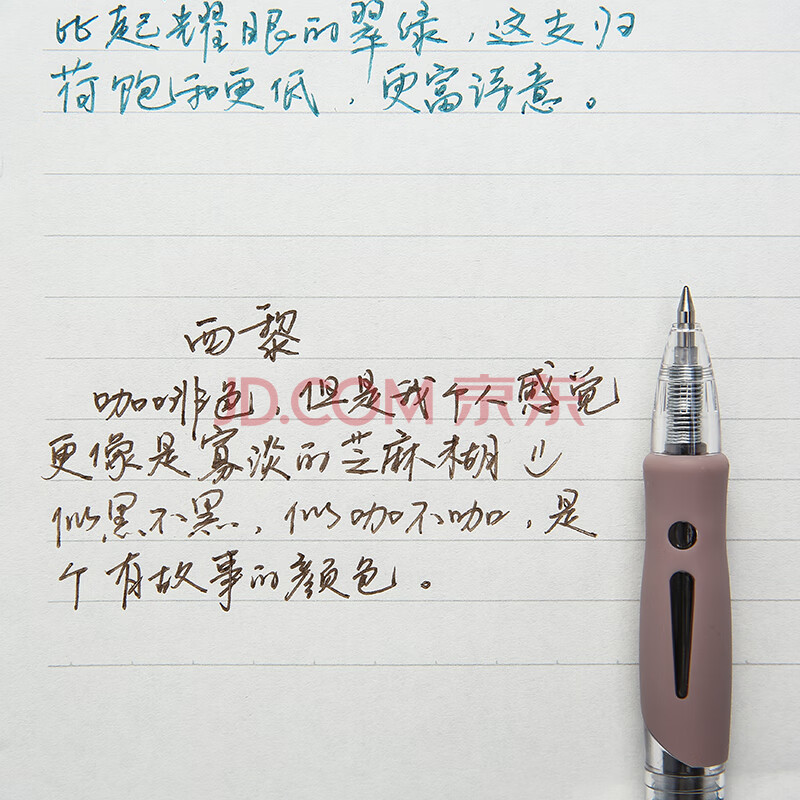 比起耀眼的翠绿，这支归
荷饱和更低，更富诗意。
西黎
JD.COM 京东
咖啡色，但是我个人感觉
更像是寡淡的芝麻糊
似黑不黑，似咖不咖，是
个有故事的颜色。